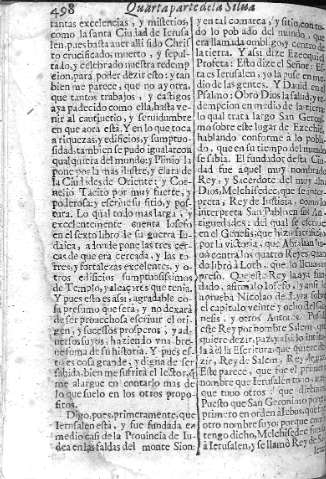 498
Quarta parte de la Silua
tantas excelencias, y misterios
como la santa Ciudad de Ierusa
len, pues basta auer alli sido Christ
to crucificado, muerto, y sepul-
tado, y celebrado nuestra redemp
cion, para poder dezir esto: y tan
bien me parece, que no ay otra,
que tantos trabajos, y castigos
aya padecido como ella, hasta ve-
nir al cautiuerio, y seruidumbre
en que aora està. Y en lo que toca
a riquezas, y edificios, y sumptuo-
sidad tambien se pudo igualar con
qualquiera del mundo: y Plinio la
pone por la mas ilustre, y clara de
la Ciudades de Oriente: y Corne-
lio Tacito por muy fuerte, y
poderosa: y escriue su sitio, y pos-
tura. Lo qual todo mas larga, y
excelentemente cuenta Iosefo
en el sexto libro de su guerra Iu-
daica, a donde pone las tres cer-
cas de que era cercada, y las to-
rres, y fortalezas excelentes, y o-
tros edificios sumptuosissimos
de Templo, y alcaçares que tenia.
Y pues esto es assi, agradable co-
sa presumo que sera, y no dexarà
de ser prouechosa escriuir el ori-
gen, y sucessos prosperos, y ad-
uersos suyos, haziendo vna bre-
ne soma de su historia. Y pues es-
tos es cosa grande, y digna de ser
sabida, bien me sufrirà el lector, si
me alargue en contarlo mas de
lo que suelo en los otros propo-
sitos.
Digo, pues, primeramente, que
Ierusalen està, y fue fundada en
medio casi de la Prouincia de Iu-
dea en las faldas del monte Sion:
y en tal comarca, y sitio, con to-
do lo poblado del mundo, que
era llamada ombligo y centro de
la tierra. Y assi dize Ezequiel
Profeta: Esto dize el Señor: Es-
ta es Ierusalen, yo la puse en me-
dio de las gentes. Y Dauid en el
Psalmo: Obrò Dios la salud, y re-
dempcion en medio de la tierra,
lo qual trata largo San Geroni-
mo sobre este lugar de Ezechiel,
hablando conforme a lo pobla-
do, que en su tiempo del mundo
se sabia. El fundador desta Ciu-
dad fue aquel muy nombrado
Rey, y Sacerdote del muy alto
Dios, Melchisedec que se inter-
preta, Rey de Iusticia, como lo
interpreta San Pablo en
del qual se escriue
en el Genesis, que hizo sacrificio
por la victoria, que Abrahan huuo
contra los quatro Reyes, quando
librò a Loth, que lo lleuauan
preso. Que este Rey la aya fun-
dado, afirmalo Iosefo, y assi lo
aprueua Nicolao de Lyra sobre
el capitulo veinte y ocho del Ge-
nesis, y otros Autores. Puso
este Rey por nombre Salem, que
quiere dezir, paz, y assi lo
la à el la Escritura, que quiere de-
zir, Rey de Salem, Rey de paz.
Este parece, que fue el primer
nombre que Ierusalen tuuo, aun-
que tuuo otros
Puesto que San Geronimo
primero en orden à Iebus, que es
otro nombre suyo: porque como
tengo dicho, Melchisedec fundò
a Ierusalen, y se llamò Rey de Sa-